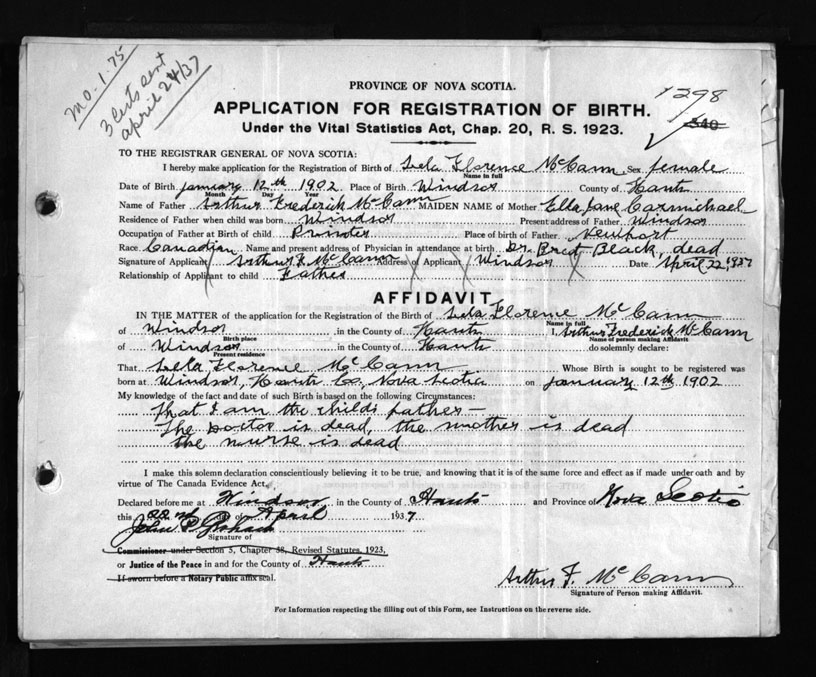 M.O. 1.75
3 Cents sent
April 24/37
PROVINCE OF NOVA SCOTIA.
1298
APPLICATION FOR REGISTRATION OF BIRTH.
340
Under the Vital Statistics Act, Chap. 20, R. S. 1923.
TO THE REGISTRAR GENERAL OF NOVA SCOTIA:
I hereby make application for the Registration of Birth of Lela Florence McCann Sex female
Name in full
Date of Birth January 12th 1902 Place of Birth Windsor County of Hants
Month Day Year
Name of Father Arthur Frederick McCann MAIDEN NAME of Mother Ella Jane Carmichael
Residence of Father when child was born Windsor Present address of Father Windsor
Occupation of Father at Birth of child Printer Place of birth of Father Newport
Race Canadian Name and present address of Physician in attendance at birth Dr. Black, dead
Signature of Applicant Arthur F. McCann Address of Applicant Windsor Date April 22, 1937
Relationship of Applicant to child Father
AFFIDAVIT
IN THE MATTER of the application for the Registration of the Birth of Lela Florence McCann
Name in full
of Windsor in the County of Hants I, Arthur Frederick McCann
Birth place Name of person making Affidavit
of Windsor in the County of Hants do solemnly declare:
Present residence
That Lela Florence McCann Whose Birth is sought to be registered was
born at Windsor, Hants Co, Nova Scotia on January 12th 1902
My knowledge of the fact and date of such Birth is based on the following Circumstances:
That I am the childs father—
The Doctor is dead, the mother is dead
the nurse is dead
I make this solemn declaration conscientiously believing it to be true, and knowing that it is of the same force and effect as if made under oath and by
virtue of The Canada Evidence Act.
Declared before me at Windsor in the County of Hants and Province of Nova Scotia
this 22nd of April 1937
John P.
Signature of
Commissioner under Section 3, Chapter 38, Revised Statutes, 1923,
or Justice of the Peace in and for the County of Hants
If sworn before a Notary Public affix seal.
Arthur F. McCann
Signature of Person making Affidavit.
For Information respecting the filling out of this Form, see Instructions on the reverse side.